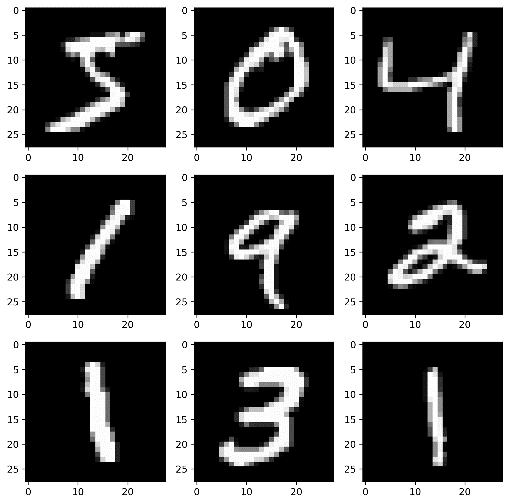 0
5
10
15
20
25
0 10 20
0
5
10
15
20
25
0 10 20
0
5
10
15
20
25
0 10 20
5 0 4
0
5
10
15
20
25
0 10 20
0
5
10
15
20
25
0 10 20
0
5
10
15
20
25
0 10 20
1 9 2
0
5
10
15
20
25
0 10 20
0
5
10
15
20
25
0 10 20
0
5
10
15
20
25
0 10 20
1 3 1